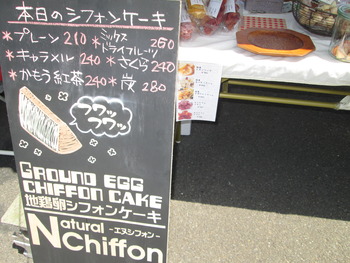 本日のシフォンケーキ
*プレーン 210 *ミックスドライフルーツ 260
*キャラメル 240 *さくら 240
*かもう紅茶 240 *炭 280
フワッ
フワッ
GROUND EGG
CHIFFON CAKE
地鶏卵シフォンケーキ
Natural
-エヌシフォン-
Chiffon